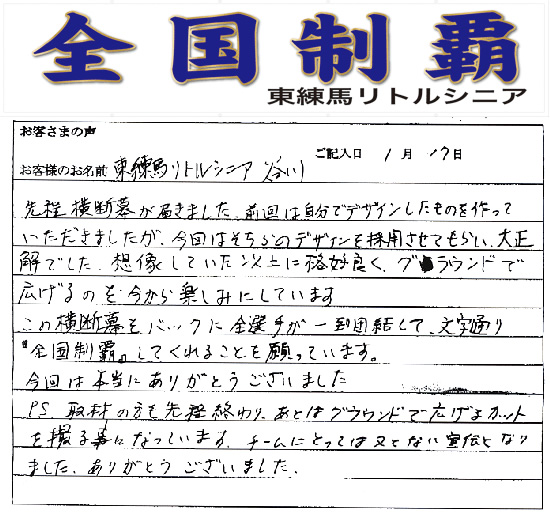 全国制覇
東練馬リトルシニア
お客さまの声
ご記入日 1月17日
お客様のお名前 東練馬リトルシニア 谷川
先程横断幕が届きました。前回は自分でデザインしたものを作って
いただきましたが、今回はそちらのデザインを採用させてもらい、大正
解でした。想像していた以上に格好良く、グラウンドで
広げるのを今から楽しみにしています
この横断幕をバックに全選手が一致団結して、文字通り
『全国制覇』してくれることを願っています。
今回は本当にありがとうございました
PS 取材の方も先程終わり、あとはグラウンドで広げるカット
を撮る事になっています。チームにとっては又とない宣伝となり
ました。ありがとうございました。